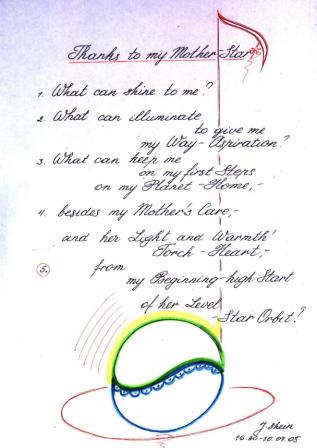 Thanks to my Mother-Star
1. What can shine to me?
2. What can illuminate
to give me
my Way-Aspiration?
3. What can keep me
on my first Steps
on my Planet-Home,-
4. besides my Mother's Care,-
and her Light and Warmth'
Torch-Heart,-
5. from
my Beginning-high-Start
of her Level
-Star Orbit?
J Shein
16.20-10.09.05